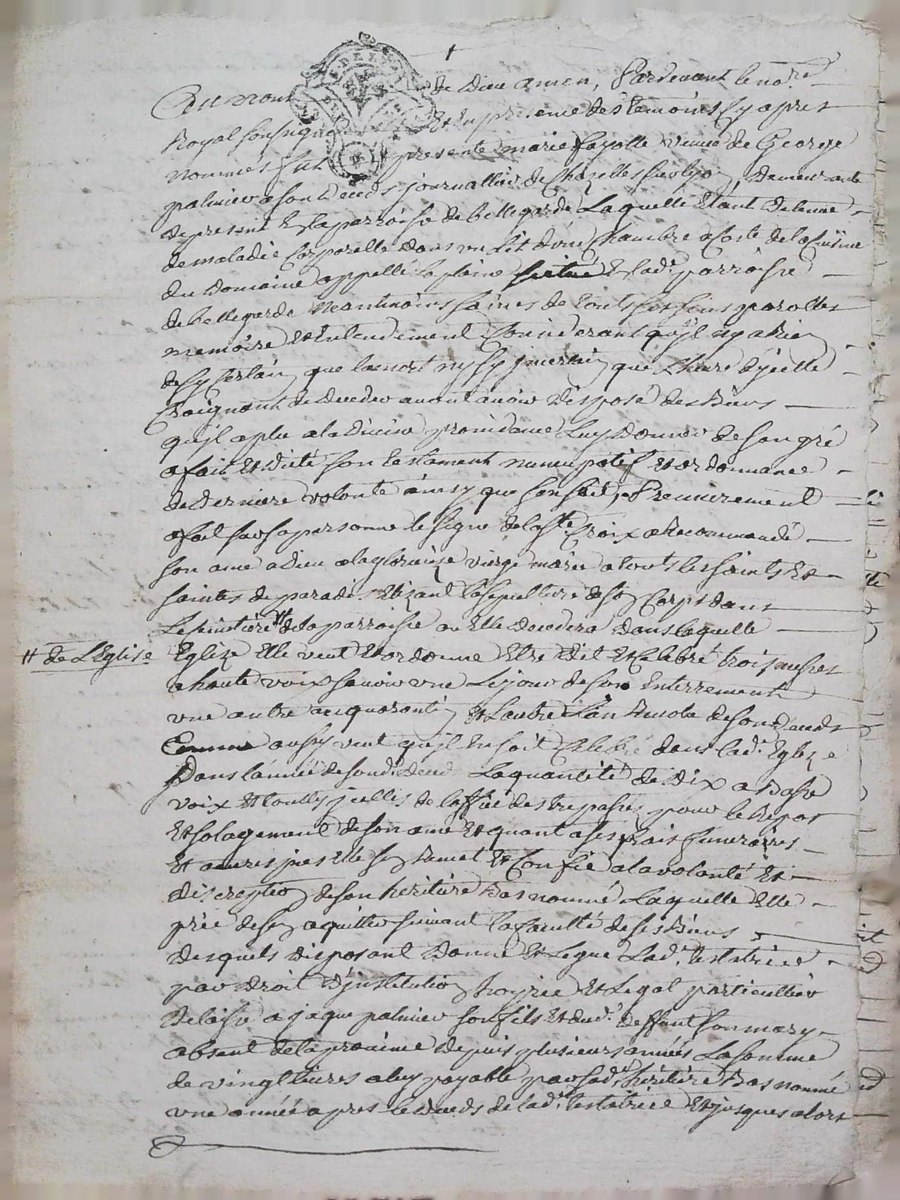 Au nom de Dieu amen, Pardevant le nore
Royal soussigné Et en presence des temoins cy apres
nommés fut presente marie fayolle veuve de George
palmier a son deceds journallier de Chazelles sur lyon, Demeurante
de present En la parroisse de bellegarde Laquelle Etant detenue
de maladie corporelle dans un lit d'une chambre a Coté de la Cuisine
du Domaine appellé la plaine situé En lad. parroisse
de bellegarde Neantmoins saines de touts ses sens parolles
memoire Et Entendement Considerant qu'il n'y a rien
de sy certain que la mort ny sy jncertain que l'heure d'jcelle
Craignant de deceder avant avoir disposé des Biens
qu'jl a plu a la Divine providance Luy Donner de son gré
a fait Et dicté son testament nuncupatif Et ordonnance
de Derniere volonté ainsy que s'en suit, Premierement
a fait sur sa personne le signe de la ste Croix a Recommandé
son ame a Dieu a la glorieuze vierge marie a touts les saints Et
saintes de paradis Elizant la sepulture de son Corps dans
Le semetière # de la parroisse ou Elle decedera Dans laquelle
# de L'Eglise
Eglize Elle veut Et ordonne Etre dit Et Celebré trois messes
a haute voix savoir une Le jour de son Enterrement
une autre au quarantin Et L'autre a l'an Revolu de son deceds
Comme aussy veut qu'jl En soit Celebré dans lad. Eglize
Dans l'année de sond. deced Laquantité de Dix a Basse
voix Et touttes jcelles de l'office des trepassés pour le Repos
Et solagement de son ame Et quant a ses frais funeraires
Et autres Elle s'en Remet Et Confie a la volonté Et
discreption de son heritière Bas nommé Laquelle Elle
prie de s'en aquitter suivant la faculté de ses Biens
desquels disposant Donne Et Legue Lad. testatrice
par droit D'jnstitution hoirie Et Legat particullier
Delaissé a jaque palmier son fils Et dud. deffunt son mary
absent de la province depuis plusieurs années La somme
de vingt livres a luy payable par sad. heritière Bas nommé
une année apres Le deceds de lad. testatrice Et jusques alors